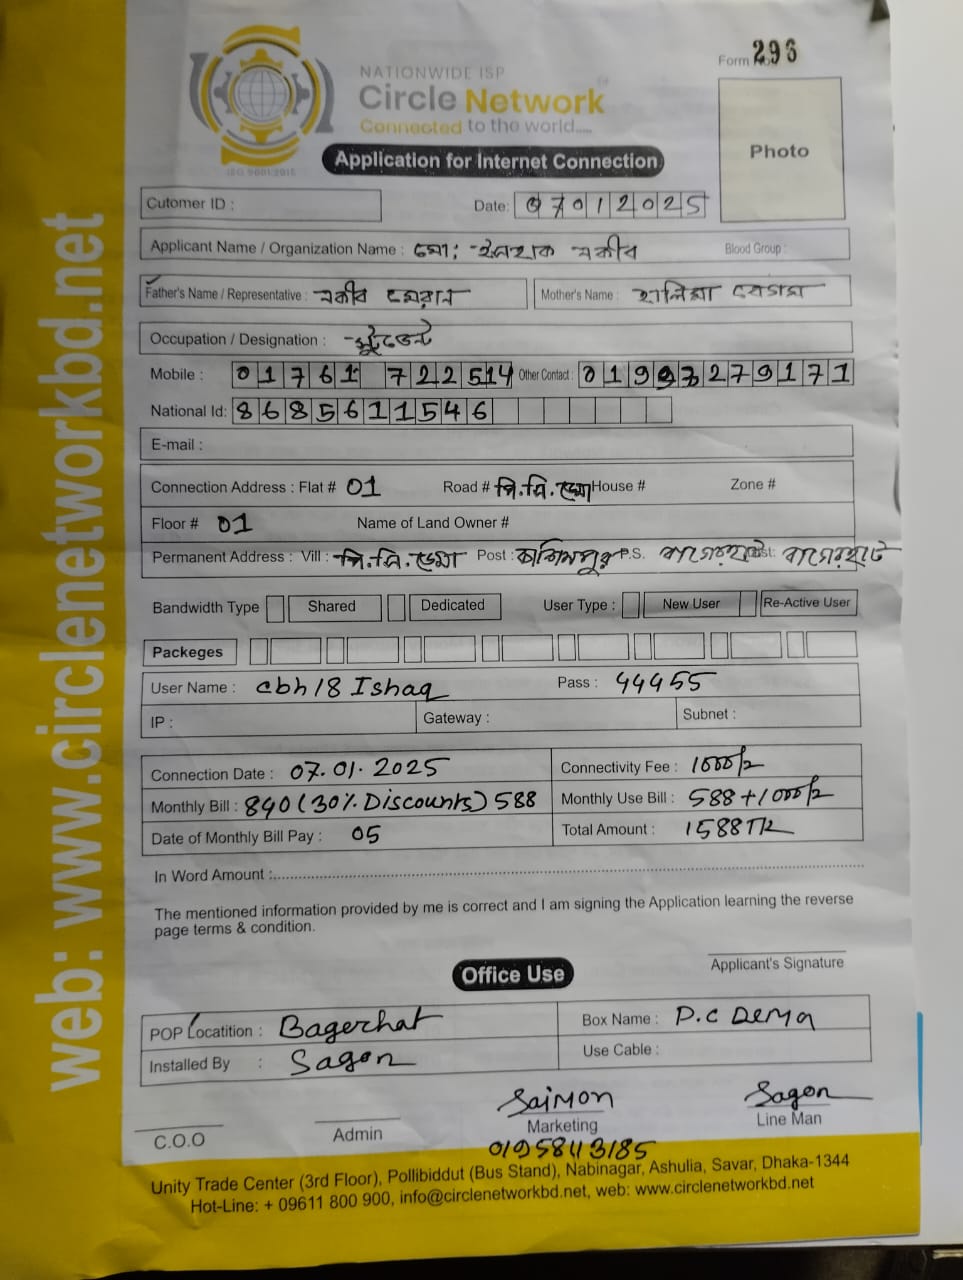 Form No. 296
NATIONWIDE ISP
Circle Network
Connected to the world.....
ISO 9001:2015
Application for Internet Connection
Photo
Cutomer ID :
Date: 07012025
Applicant Name / Organization Name : মো: ইসহাক নকীব
Blood Group :
Father's Name / Representative : নকীব মেহরান
Mother's Name : হালিমা বেগম
Occupation / Designation : স্টুডেন্ট
Mobile : 01761 722514 Other Contact : 01993279171
National Id: 8685611546
E-mail :
Connection Address : Flat # 01 Road # পি.সি.ডেমা House # Zone #
Floor # 01 Name of Land Owner #
Permanent Address : Vill : পি.সি.ডেমা Post : কাশিমপুর P.S. বাগেরহাট Dist: বাগেরহাট
Bandwidth Type Shared Dedicated User Type : New User Re-Active User
Packeges
User Name : cbh18 Ishaq Pass : 44455
IP : Gateway : Subnet :
Connection Date : 07.01.2025 Connectivity Fee : 1000/=
Monthly Bill : 840 (30% Discounts) 588 Monthly Use Bill : 588+1000/=
Date of Monthly Bill Pay : 05 Total Amount : 1588TK
In Word Amount :
The mentioned information provided by me is correct and I am signing the Application learning the reverse
page terms & condition.
Applicant's Signature
Office Use
POP Locatition : Bagerhat Box Name : P.C Dema
Installed By : Sagon Use Cable :
Saimon Sagon
C.O.O Admin Marketing Line Man
01958113185
Unity Trade Center (3rd Floor), Pollibiddut (Bus Stand), Nabinagar, Ashulia, Savar, Dhaka-1344
Hot-Line: + 09611 800 900, info@circlenetworkbd.net, web: www.circlenetworkbd.net
web: www.circlenetworkbd.net